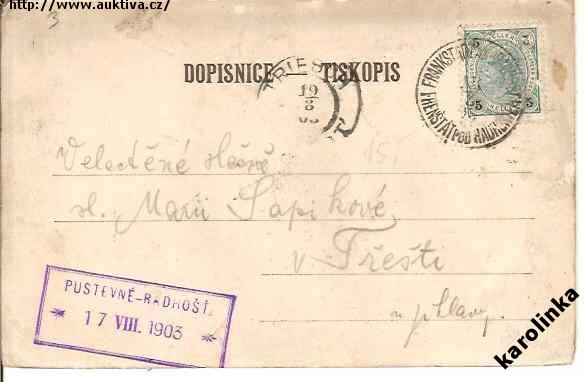 http://www.auktiva.cz/
3
DOPISNICE — TISKOPIS
TRIESCH
19
8
03
FRANKSTADT
FRENŠTÁT POD RADHOŠTĚM
5 5
15.
Velectěné slečně
sl. Marii Šapikové,
v Třešti
u Jihlavy.
PUSTEVNĚ-RADHOŠŤ.
17 VIII. 1903
karolinka